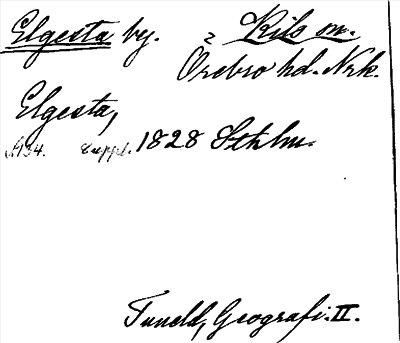 Elgesta by. 2 Kils sn.
Örebro hd. Nrk.
Elgesta,
s. 134. Suppl. 1828 Sthlm.
Tuneld, Geografi. II.